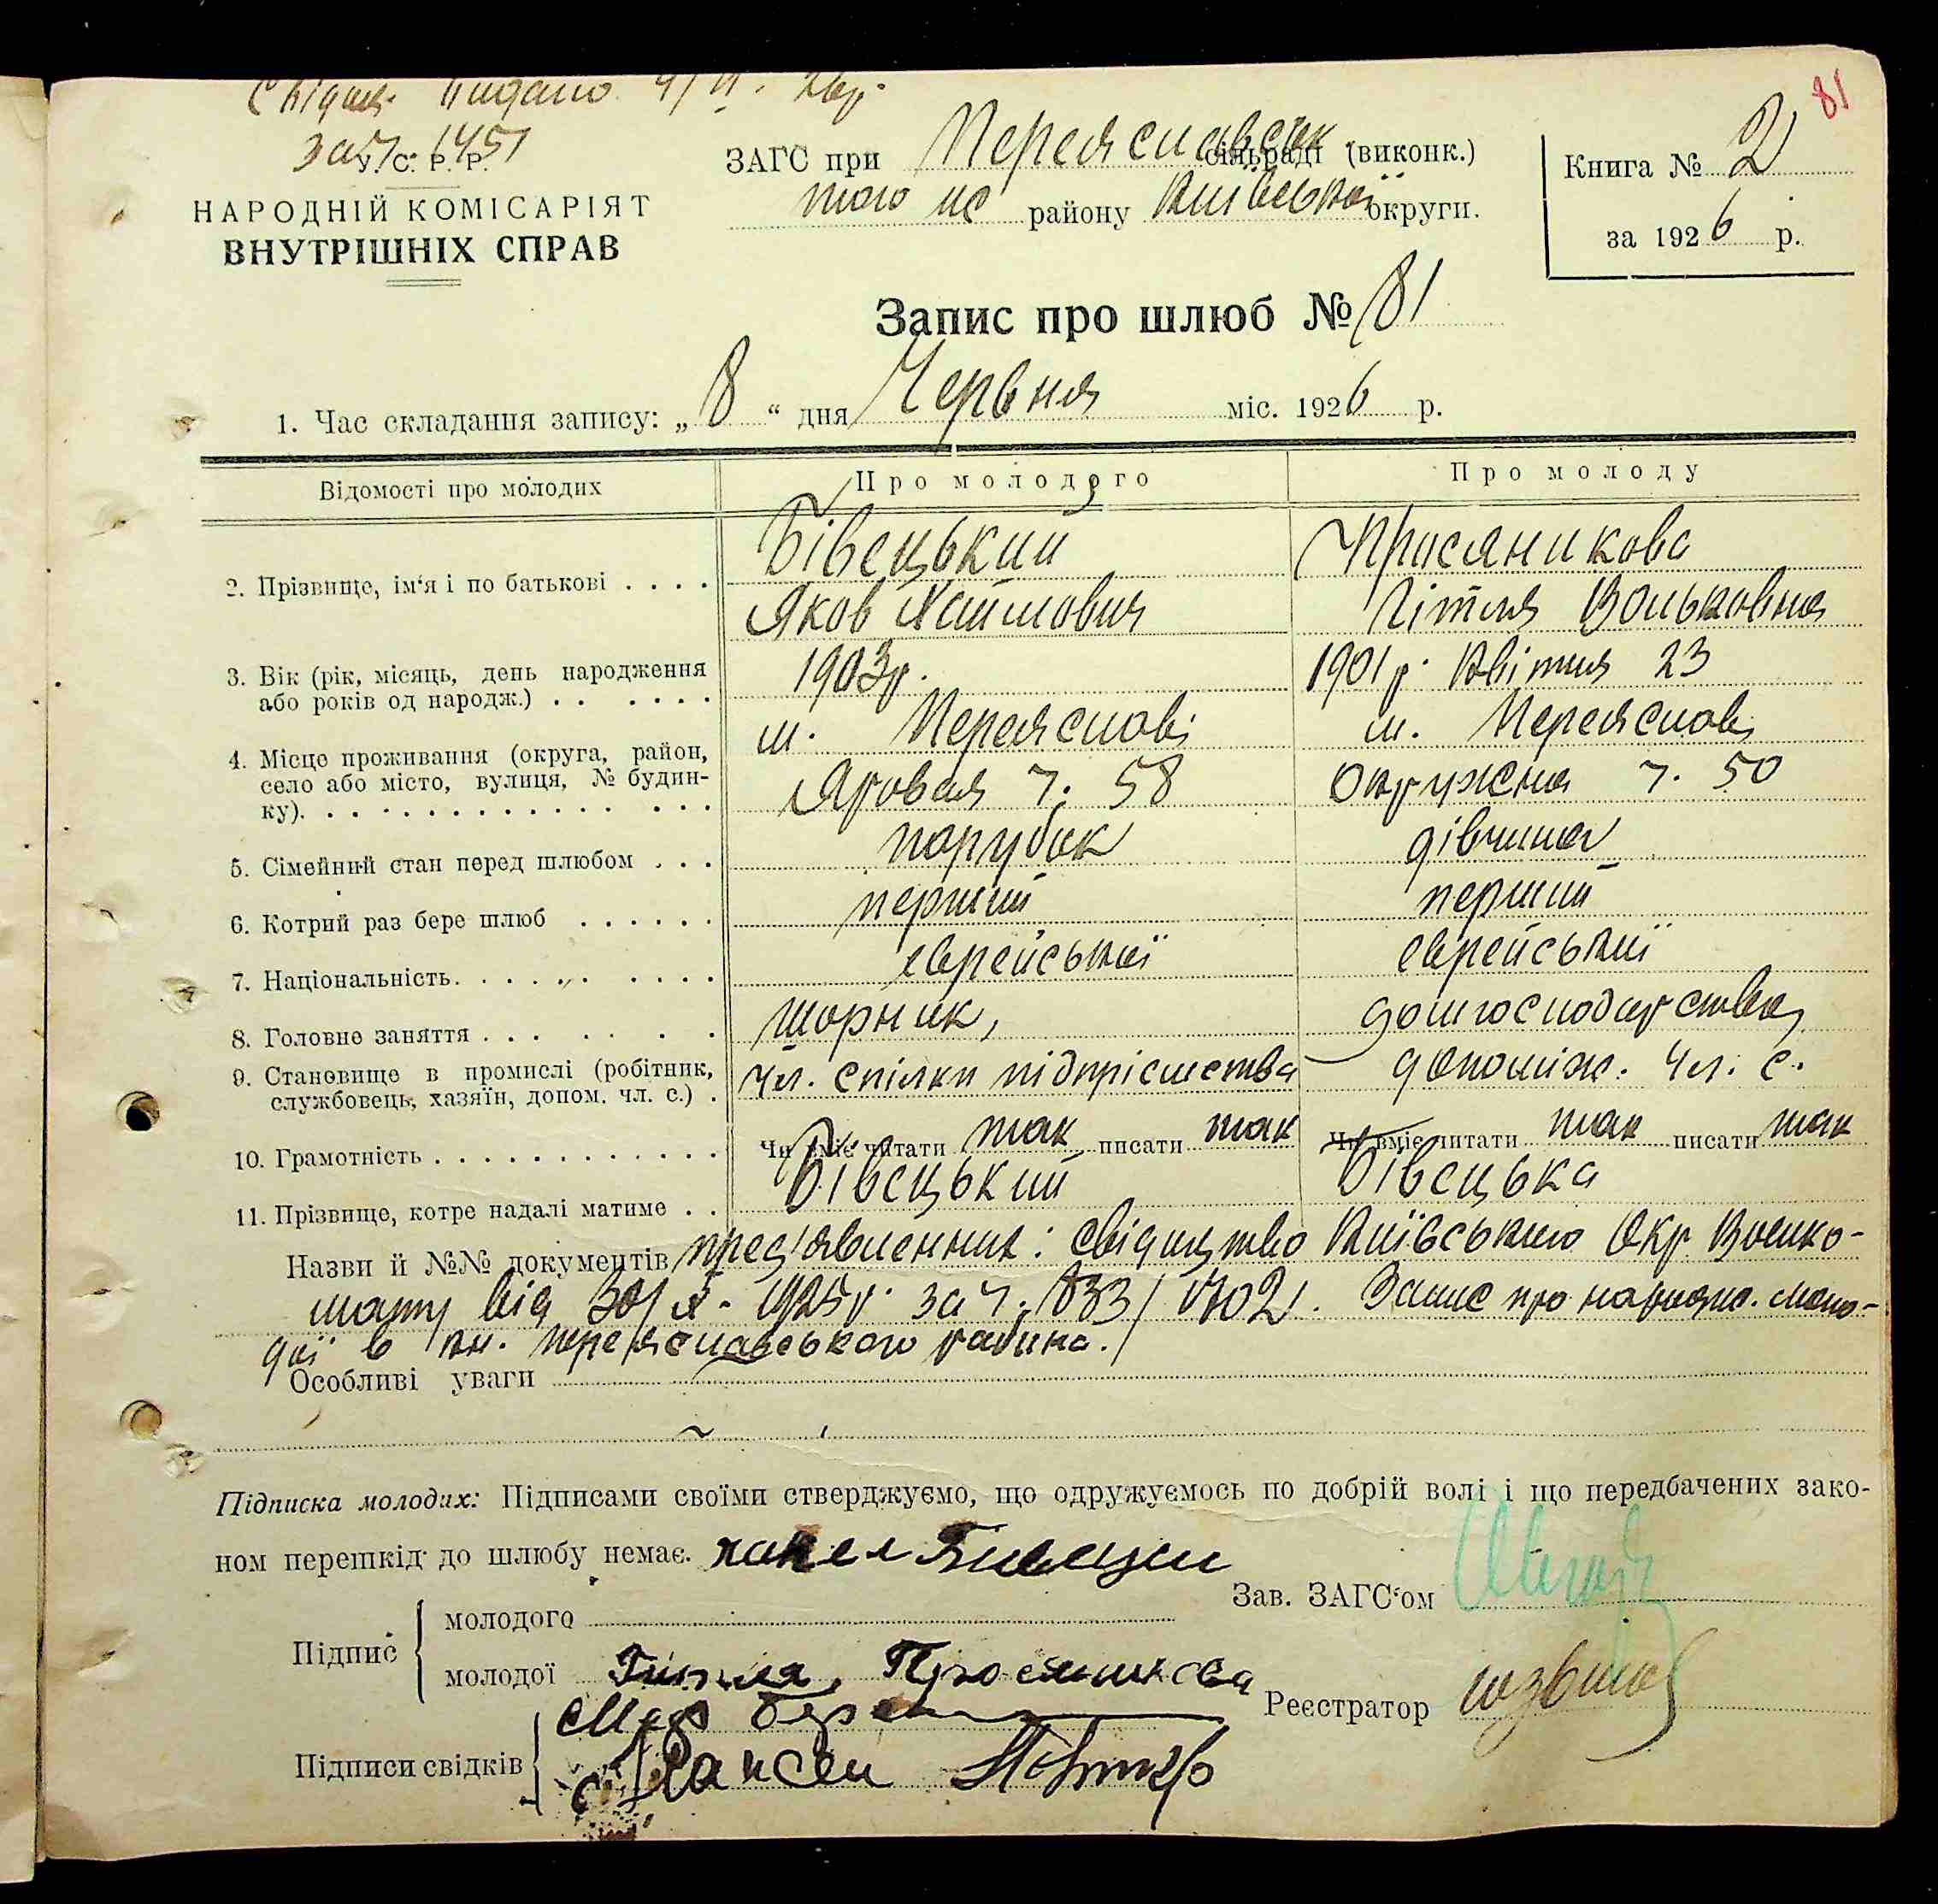 81
Свідоц. видано 9/VI. 26р.
за ч. 1451
У. С. Р. Р.
НАРОДНІЙ КОМІСАРІЯТ
ВНУТРІШНІХ СПРАВ
ЗАГС при Переяславськ сільраді (виконк.)
того же району Київської округи.
Книга № 2
за 1926 р.
Запис про шлюб № 81
1. Час складання запису: „ 8 “ дня Червня міс. 1926 р.
Відомості про молодих Про молодого Про молоду
2. Прізвище, ім‘я і по батькові . . . . Бівецький Просяникова
Яков Хаїмович Гітля Вольковна
3. Вік (рік, місяць, день народження 1903р. 1901 р. Квітня 23
або років од народж.) . . . . . .
4. Місце проживання (округа, район, м. Переяслові м. Переяслові
село або місто, вулиця, № будин- Ярова ч. 58 Окружна ч. 50
ку). . . . . . . . . . . . . . .
5. Сімейний стан перед шлюбом . . . парубок дівчина
6. Котрий раз бере шлюб . . . . . . перший перший
7. Національність. . . . . . . . . . еврейської еврейської
8. Головне заняття . . . . . . . шорник, домгосподарства
9. Становище в промислі (робітник, чл. спілки підпрісмства допоміж. чл. с.
службовець, хазяїн, допом. чл. с.) .
10. Грамотність . . . . . . . . . . . . Чи вміє читати так писати так Чи вміє читати так писати так
11. Прізвище, котре надалі матиме . . Бівецький Бівецька
Назви й №№ документів пред'явленних: свідоцтво Київського Окр. Военко-
мату від 30/X - 1925р. за ч. 833/1702. Запис про народж. моло-
дої в кн. переяславського рабина.
Особливі уваги
Підписка молодих: Підписами своїми стверджуємо, що одружуємось по добрій волі і що передбачених зако-
ном перешкід до шлюбу немає.
Зав. ЗАГС‘ом
Підпис
молодого
молодої Гитля Просяникова
Реєстратор
Підписи свідків